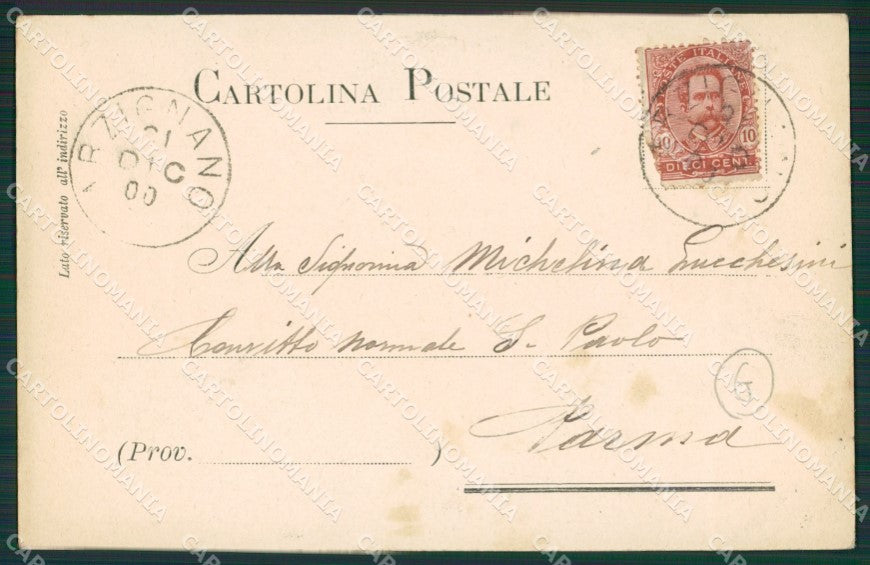 CARTOLINA POSTALE
Lato riservato all'indirizzo
ARZIGNANO
21
DIC
00
POSTE ITALIANE
10
10
DIECI CENT.
Alla Signorina Michelina Lucchesini
Convitto normale S. Paolo
Parma
(Prov. )
G
CARTOLINOMANIA